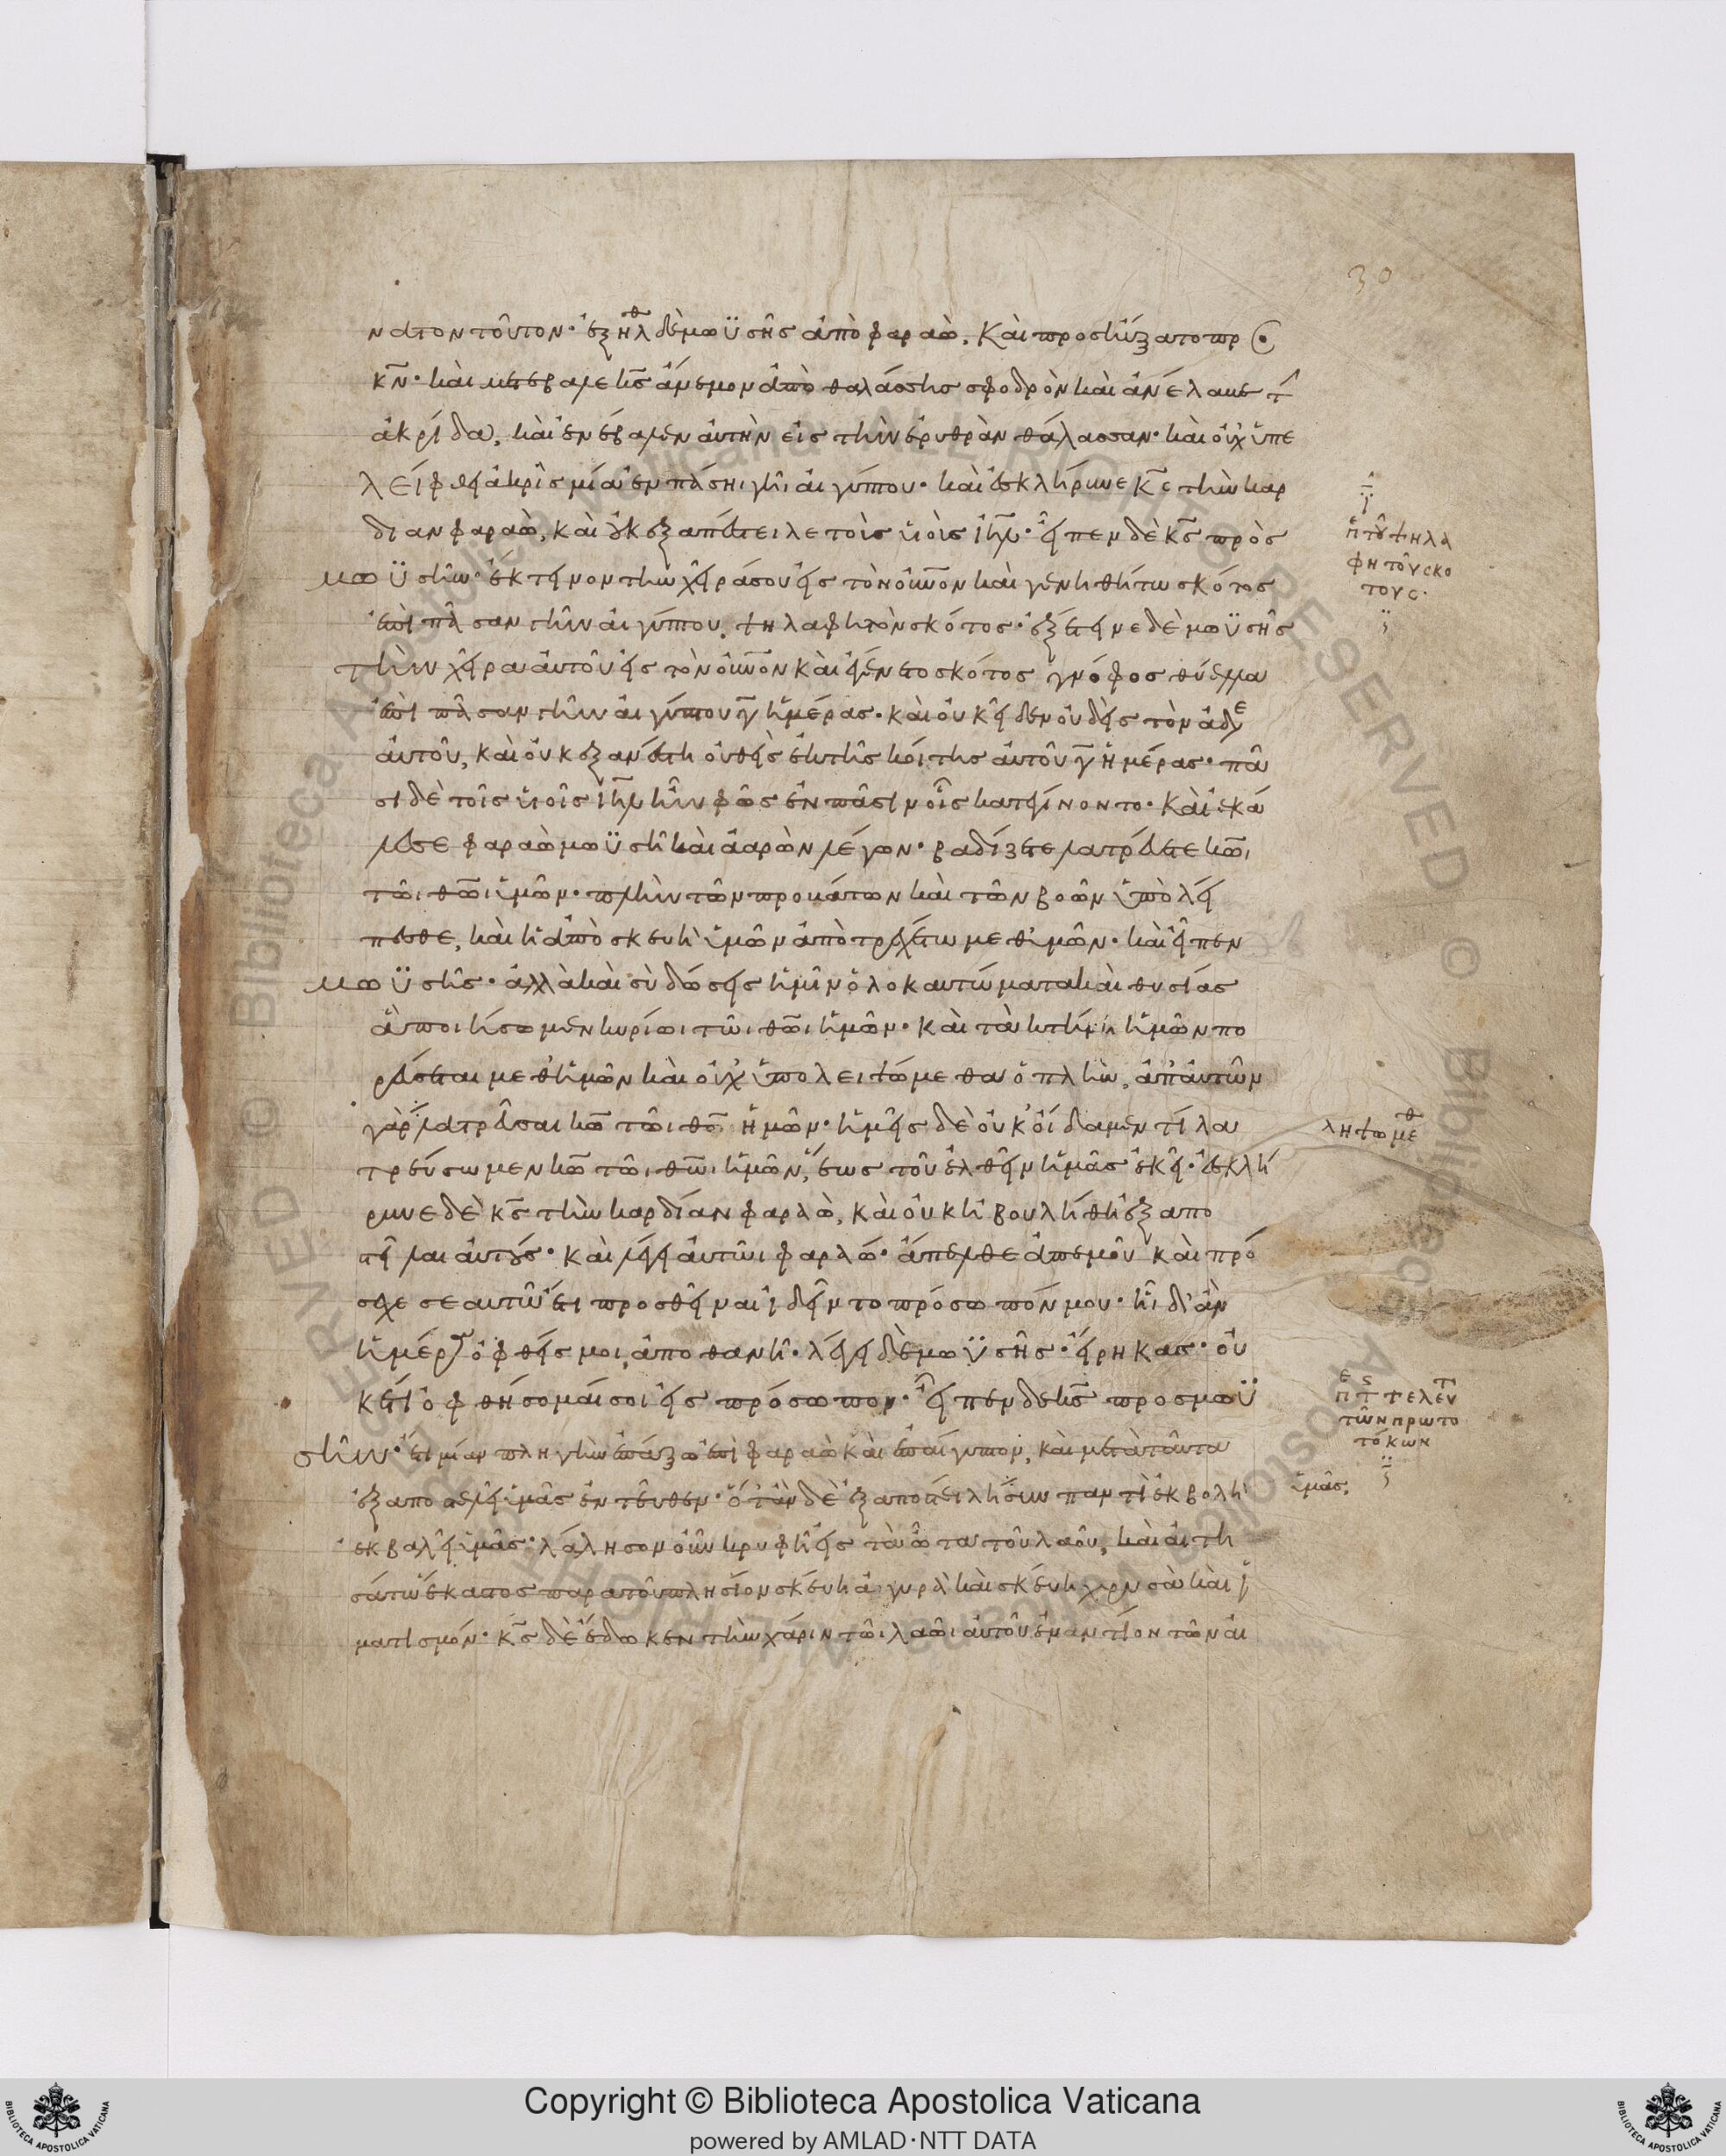 30
νατον τοῦτον· ἐξῆλθ δὲ μωϋσῆς ἀπὸ φαραώ, καὶ προσηύξατο πρ
κν· καὶ μετέβαλε κς ἄνεμον ἀπὸ θαλάσσης σφοδρὸν καὶ ἀνέλαβε τ
ἀκρίδα, καὶ ἐνέβαλεν αὐτὴν εἰς τὴν ἐρυθρὰν θάλασσαν· καὶ οὐχ ὑπε
λείφθη ἀκρὶς μία ἐν πάσηι γῆι αἰγύπτου· καὶ ἐσκλήρυνε κς τὴν καρ
δίαν φαραώ, καὶ οὐκ ἐξαπέστειλε τοὺς υἱοὺς ιηλ· εἶπεν δὲ κς πρὸς
μωϋσῆν· ἔκτεινον τὴν χεῖρά σου εἰς τὸν οὐνον καὶ γενηθήτω σκότος
ἐπὶ πᾶσαν τὴν αἰγύπτου, ψηλαφητὸν σκότος· ἐξέτεινε δὲ μωϋσῆς
τὴν χεῖρα αὐτοῦ εἰς τὸν οὐνον καὶ ἐγένετο σκότος γνόφος θύελλα
ἐπὶ πᾶσαν τὴν αἰγύπτου γ ἡμέρας· καὶ οὐκ εἶδεν οὐδεὶς τὸν ἀδε
αὐτοῦ, καὶ οὐκ ἐξανέστη οὐθεὶς ἐκ τῆς κοίτης αὐτοῦ γ ἡμέρας· πᾶ
σι δὲ τοῖς υἱοῖς ιηλ ἦν φῶς ἐν πᾶσιν οἷς κατεγίνοντο· καὶ ἐκά
λεσε φαραὼ μωϋσῆ καὶ ἀαρὼν λέγων· βαδίζετε λατρεύετε κωι
τῶι θωι ὑμῶν· πλὴν τῶν προβάτων καὶ τῶν βοῶν ὑπολεί
πεσθε, καὶ ἡ ἀποσκευὴ ὑμῶν ἀποτρεχέτω μεθ' ὑμῶν· καὶ εἶπεν
μωϋσῆς· ἀλλὰ καὶ σὺ δώσεις ἡμῖν ὁλοκαυτώματα καὶ θυσίας
ἃ ποιήσωμεν κυρίωι τῶι θωι ἡμῶν· καὶ τὰ κτήνη ἡμῶν πο
ρεύσεται μεθ' ἡμῶν καὶ οὐχ ὑπολειψώμεθα ὁπλὴν, ἀπ' αὐτῶν
γὰρ λατρεῦσαι κω τῶι θω ἡμῶν· ἡμεῖς δὲ οὐκ οἴδαμεν τί λα
τρεύσωμεν κω τῶι θωι ἡμῶν, ἕως τοῦ ἐλθεῖν ἡμᾶς ἐκεῖ· ἐσκλή
ρυνε δὲ κς τὴν καρδίαν φαραώ, καὶ οὐκ ἠβουλήθη ἐξαπο
στεῖλαι αὐτούς· καὶ λέγει αὐτῶι φαραώ· ἄπελθε ἀπ' ἐμοῦ καὶ πρό
σχε σεαυτῶ ἔτι προσθεῖναι ἰδεῖν το πρόσωπόν μου· ἧι δ' ἂν
ἡμέρα ὀφθεὶς μοι, ἀποθανῆ· λέγει δὲ μωϋσῆς· εἴρηκας· οὐ
κέτι ὀφθήσομαί σοι εἰς πρόσωπον· εἶπεν δὲ κς προς μωϋ
σῆν· ἔτι μίαν πληγὴν ἐπάξω ἐπὶ φαραὼ καὶ ἐπ' αἴγυπτον, καὶ μετὰ ταῦτα
ἐξαποστελεῖ ὑμᾶς ἐντεῦθεν· ὅταν δὲ ἐξαποστείλη σὺν παντὶ ἐκβολῆ
ἐκβαλεῖ ὑμᾶς· λάλησον οὖν κρυφῆ εἰς τὰ ὦτα τοῦ λαοῦ, καὶ αἰτη
σάτω ἕκαστος παρα τοῦ πλησίον σκεύη ἀργυρᾶ καὶ σκεύη χρυσᾶ καὶ ἱ
ματισμόν· κς δὲ ἔδωκεν τὴν χάριν τῶι λαῶι αὐτοῦ ἐναντίον τῶν αἰ
π τοῦ ψηλα
φητοῦ σκο
τους·
ληψωμεθ
τελευτ
τῶν πρωτο
τόκων
ὑμᾶς,
Copyright © Biblioteca Apostolica Vaticana
powered by AMLAD·NTT DATA